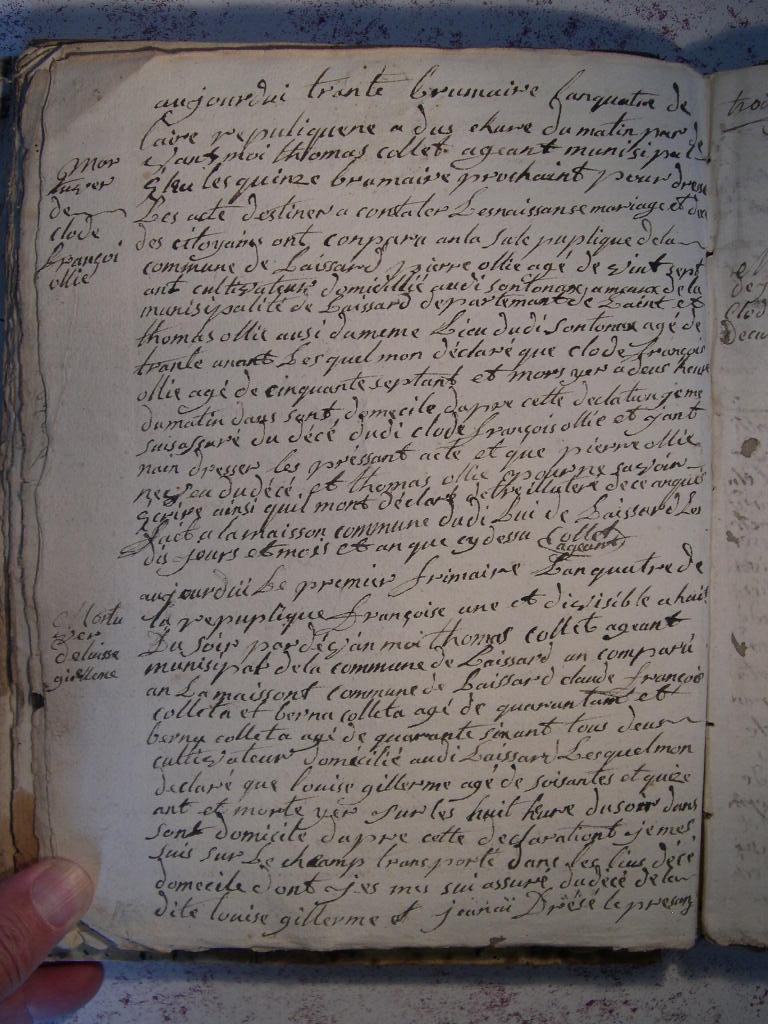 aujourdui trante brumaire lanquatre de
laire republiquene a dus eure du matin par de
vant moi thomas collet ageant munisipal
élu les quinze brumaire prochaint pour dresse
Les acte destiner a constater Les naissanse mariage et
des citoyains ont conparu an la sale puplique de la
commune de Laissard pierre ollie agé de vint sept
ant cultivateur domicillié audi
munisipalité de Laissard departemant de
thomas ollie ausi du meme Lieu dudi agé de
trante anant Les quel mon déclaré que clode françois
ollie agé de cinquante septant et mors yer a deus heure
du matin dans sont domecile dapre cette declaration jeme
suis assuré du décé dudi clode françois ollie et
dresser les préssant acte et que pierre ollie
neveu du décé et thomas ollie pour ne savoir
écrire ainsi quil mont déclaré detre illateré de ce anquis
fact a la maisson commune dudi Lui de Laissard Les
dis jours et mois et an que cy dessu Collet
ageant
Mor
tuser
de
clode
françoi
ollie
aujourdui Le premier frimaire Lanquatre de
la repuplique françoise une et divisible a huit
Du soir par devan moi thomas collet ageant
munisipar de la commune de Laissard an comparu
an La maissont commune de Laissard claude françois
colleta et berna colleta agé de quarantant et
berna colleta agé de quarante sinant tous deus
cultivateur domécilié au di Laissard Les quel mon
declaré que louise gillerme agé de soisantes et quize
ant et morte yer sur les huit heure du soir dans
sont domicile dapre cette declarationt jemes
suis sur Le champ transporté dans les lius décé
domecile dont jes mes sui assuré dudécé de la
dite louise gillerme et Drésé le presan
Mortu
yer
de luisse
gillerme
troi